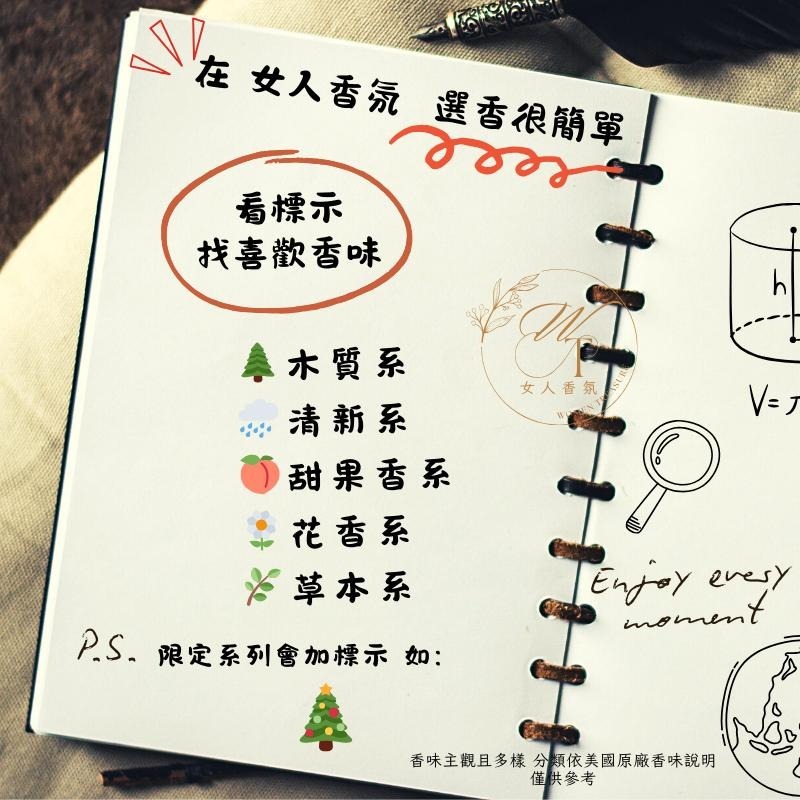 在 女人香氛 選香很簡單
看標示
找喜歡香味
木質系
清新系
甜果香系
花香系
草本系
P.S. 限定系列會加標示 如:
女人香氛
h
V=
Enjoy every
moment
香味主觀且多樣 分類依美國原廠香味說明
僅供參考